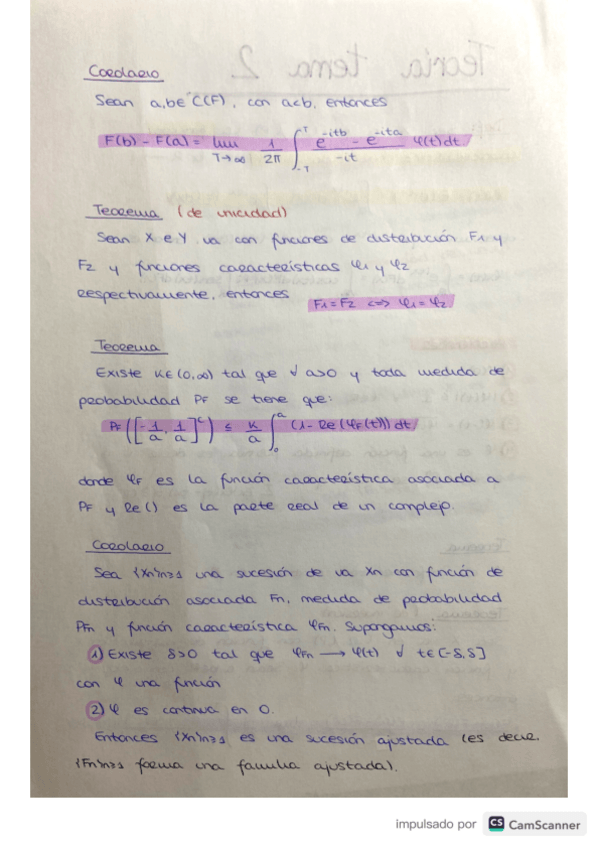 Corolario
Sean a,b∈C(F), con a<b, entonces
F(b) - F(a) = lim T→∞ 1/2π ∫_{-T}^{T} (e^{-itb} - e^{-ita})/(-it) φ(t)dt
Teorema (de unicidad)
Sean X e Y va con funciones de distribución F1 y
F2 y funciones características φ1 y φ2
respectivamente, entonces
F1=F2 <=> φ1=φ2
Teorema
Existe K∈(0,∞) tal que ∀ a>0 y toda medida de
probabilidad PF se tiene que:
PF([-1/a, 1/a]^c) ≤ K/a ∫_0^a (1-Re(φF(t)))dt
donde φF es la función característica asociada a
PF y Re() es la parte real de un complejo.
Corolario
Sea {Xn}n≥1 una sucesión de va Xn con función de
distribución asociada Fn, medida de probabilidad
PFn y función característica φFn. Supongamos:
1) Existe δ>0 tal que φFn → φ(t) ∀ t∈[-δ,δ]
con φ una función
2) φ es continua en 0.
Entonces {Xn}n≥1 es una sucesión ajustada (es decir,
{Fn}n≥1 forma una familia ajustada).
Teoria tema 2
impulsado por CS CamScanner